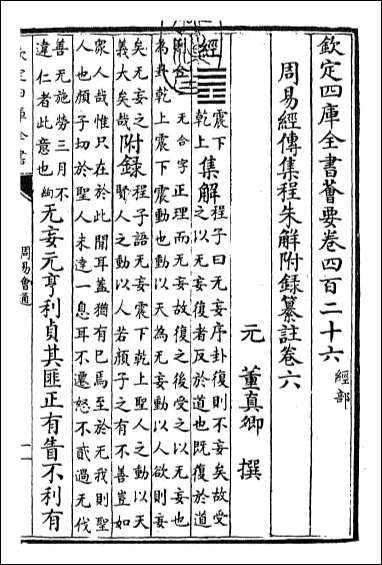 欽定四庫全書薈要卷四百二十六 經部
周易經傳集程朱解附録纂註卷六
元 董真卿 撰
經 ䷘ 震下
乾上 集解 程子曰无妄序卦復則不妄矣故受
之以无妄復者反於道也既復於道
則合 无合字正理而无妄故復之後受之以无妄也
為卦乾上震下震動也動以天為无妄動以人欲則妄
矣无妄之
義大矣哉 附録 程子語无妄震下乾上聖人之動以天
賢人之動以人若顔子之有不善豈如
衆人哉惟只在於此間耳蓋猶有已焉至於无我則聖
人也顔子切於聖人未達一息耳不遷怒不貳過无伐
善无施勞三月不
違仁者此意也 絢 无妄元亨利貞其匪正有眚不利有
欽定四庫全書
周易會通
一